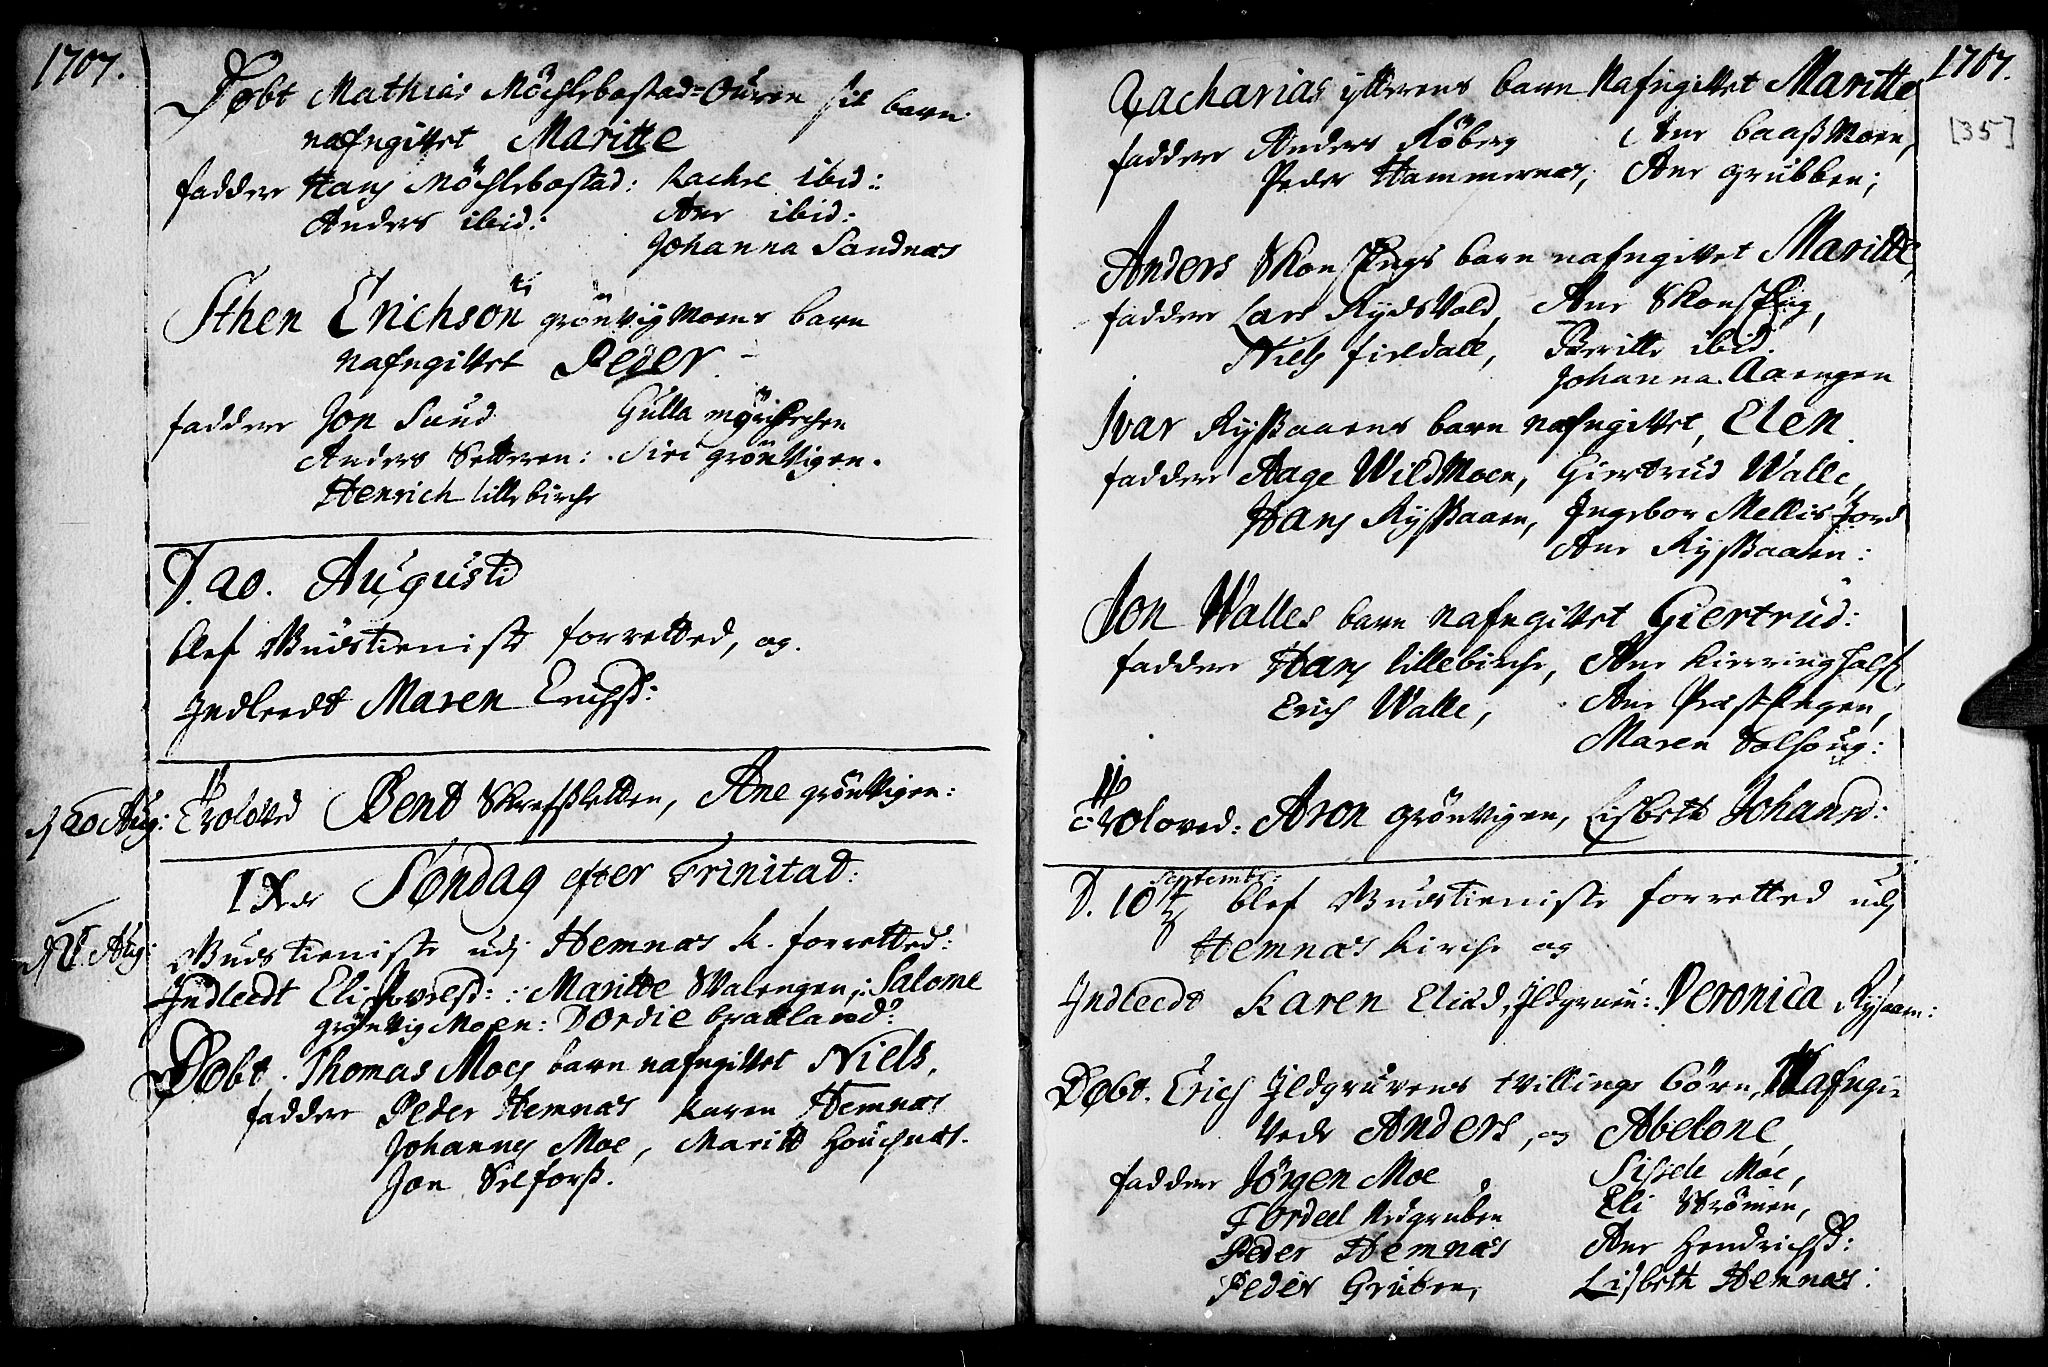 1707.
Døbt Mathias Möchlebostad=Ouren sit barn
nafngivet Maritte
faddere Hans Möchlebostad: Rachel ibid::
Anders ibid: Ane ibid:
Johanna Sandnæs
Sthen Erichsön grönvigmoens barn
nafngivet Peder
faddere Jon Sund Gulla
Anders Setteren: Siri grönvigen.
Henrich lillebirche
D. 20. Augusti
blef Gudstieniste forretted, og
Indleedt Maren Erichsd:
d 20 Aug: Troloved Bend Skrefsletten, Ane grönvigen:
IXde Søndag efter Trinitad:
d 21. Aug: Gudstieniste udj Hemnæs K. forretted:
Indleedt Eli :Maritte Valengen,: Salome
grönvigMoen: Dordie bratland:
Døbt. Thomas Moes barn nafngivet Niels,
faddere Peder Hemnæs Karen Hemnæs
Johannes Moe, Maritt Houchnæs.
Jon Selforss.
1707.
[35]
Zacharias ytterens barn Nafngivet Maritte
faddere Anders Röberg Ane baassMoen,
Peder Hammernæs, Ane grubben;
Anders Skonsengs barn nafngivet Maritte,
faddere Lars Rydsvold, Ane Skonseng,
Niels fieldall, Beritte ibid.
Johanna Aaengen
Ivar Ryssaaens barn nafngivet, Elen.
faddere Aage WildMoen, Giertrud Walle,
Hans Ryssaaen, Ingebor Mellisfiord
Ane Ryssaaen:
Jon Walles barn nafngivet Giertrud:
faddere Hans lillebirche, Ane Kierringhals,
Erich Walle, Ane Præstengen,
Maren Dolhoug:
Troloved: Aron grönvigen, Lisbeth Johansd:
D. 10 Septembr: blef Gudstieniste forretted udj
Hemnæs Kirche og
Indleedt Karen Eliæd, Ildgruen: Veronica Rysaaen:
Døbt. Erich Ildgruvens tvillinge börn, Nafngi-
vede Anders, og Abelone,
faddere Jörgen Moe Sissele Moe,
Tordeel Ildgruben Eli Strömen,
Peder Hemnæs Ane Hendrichsd:
Peder Gruben, Lisbeth Hemnæs: